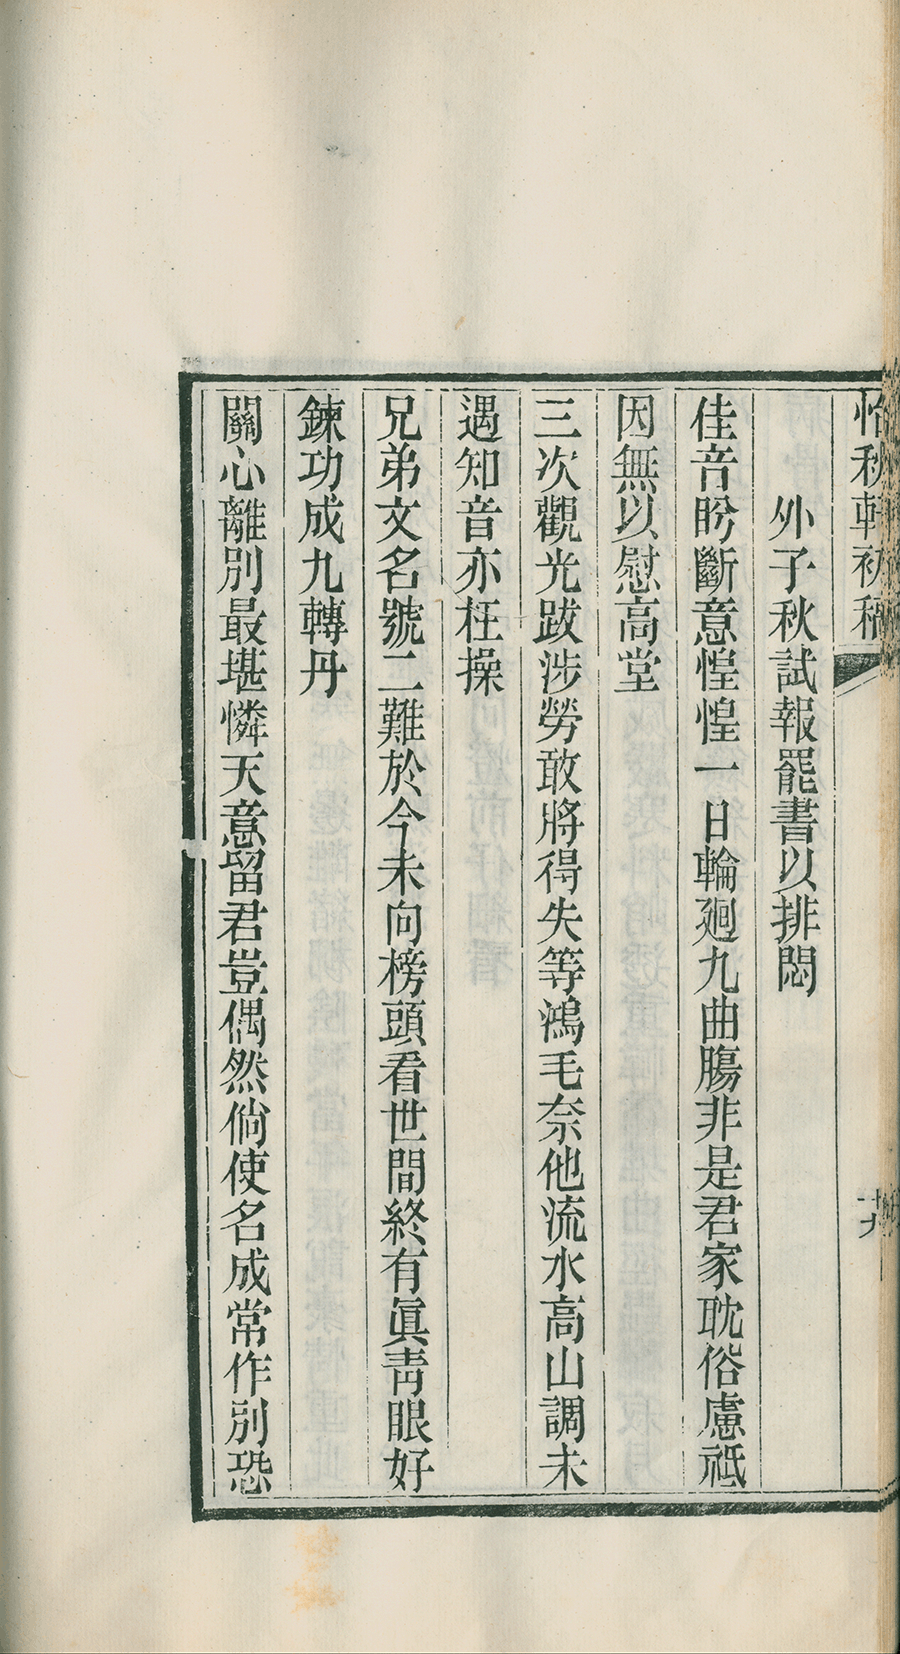 怡秋軒初稿
十九
外子秋試報罷書以排悶
佳音盻斷意惶惶一日輪廻九曲腸非是君家耽俗慮祗
因無以慰高堂
三次觀光跋涉勞敢將得失等鴻毛奈他流水高山調未
遇知音亦枉操
兄弟文名號二難於今未向榜頭看世間終有眞靑眼好
鍊功成九轉丹
關心離別最堪憐天意留君豈偶然倘使名成常作別恐